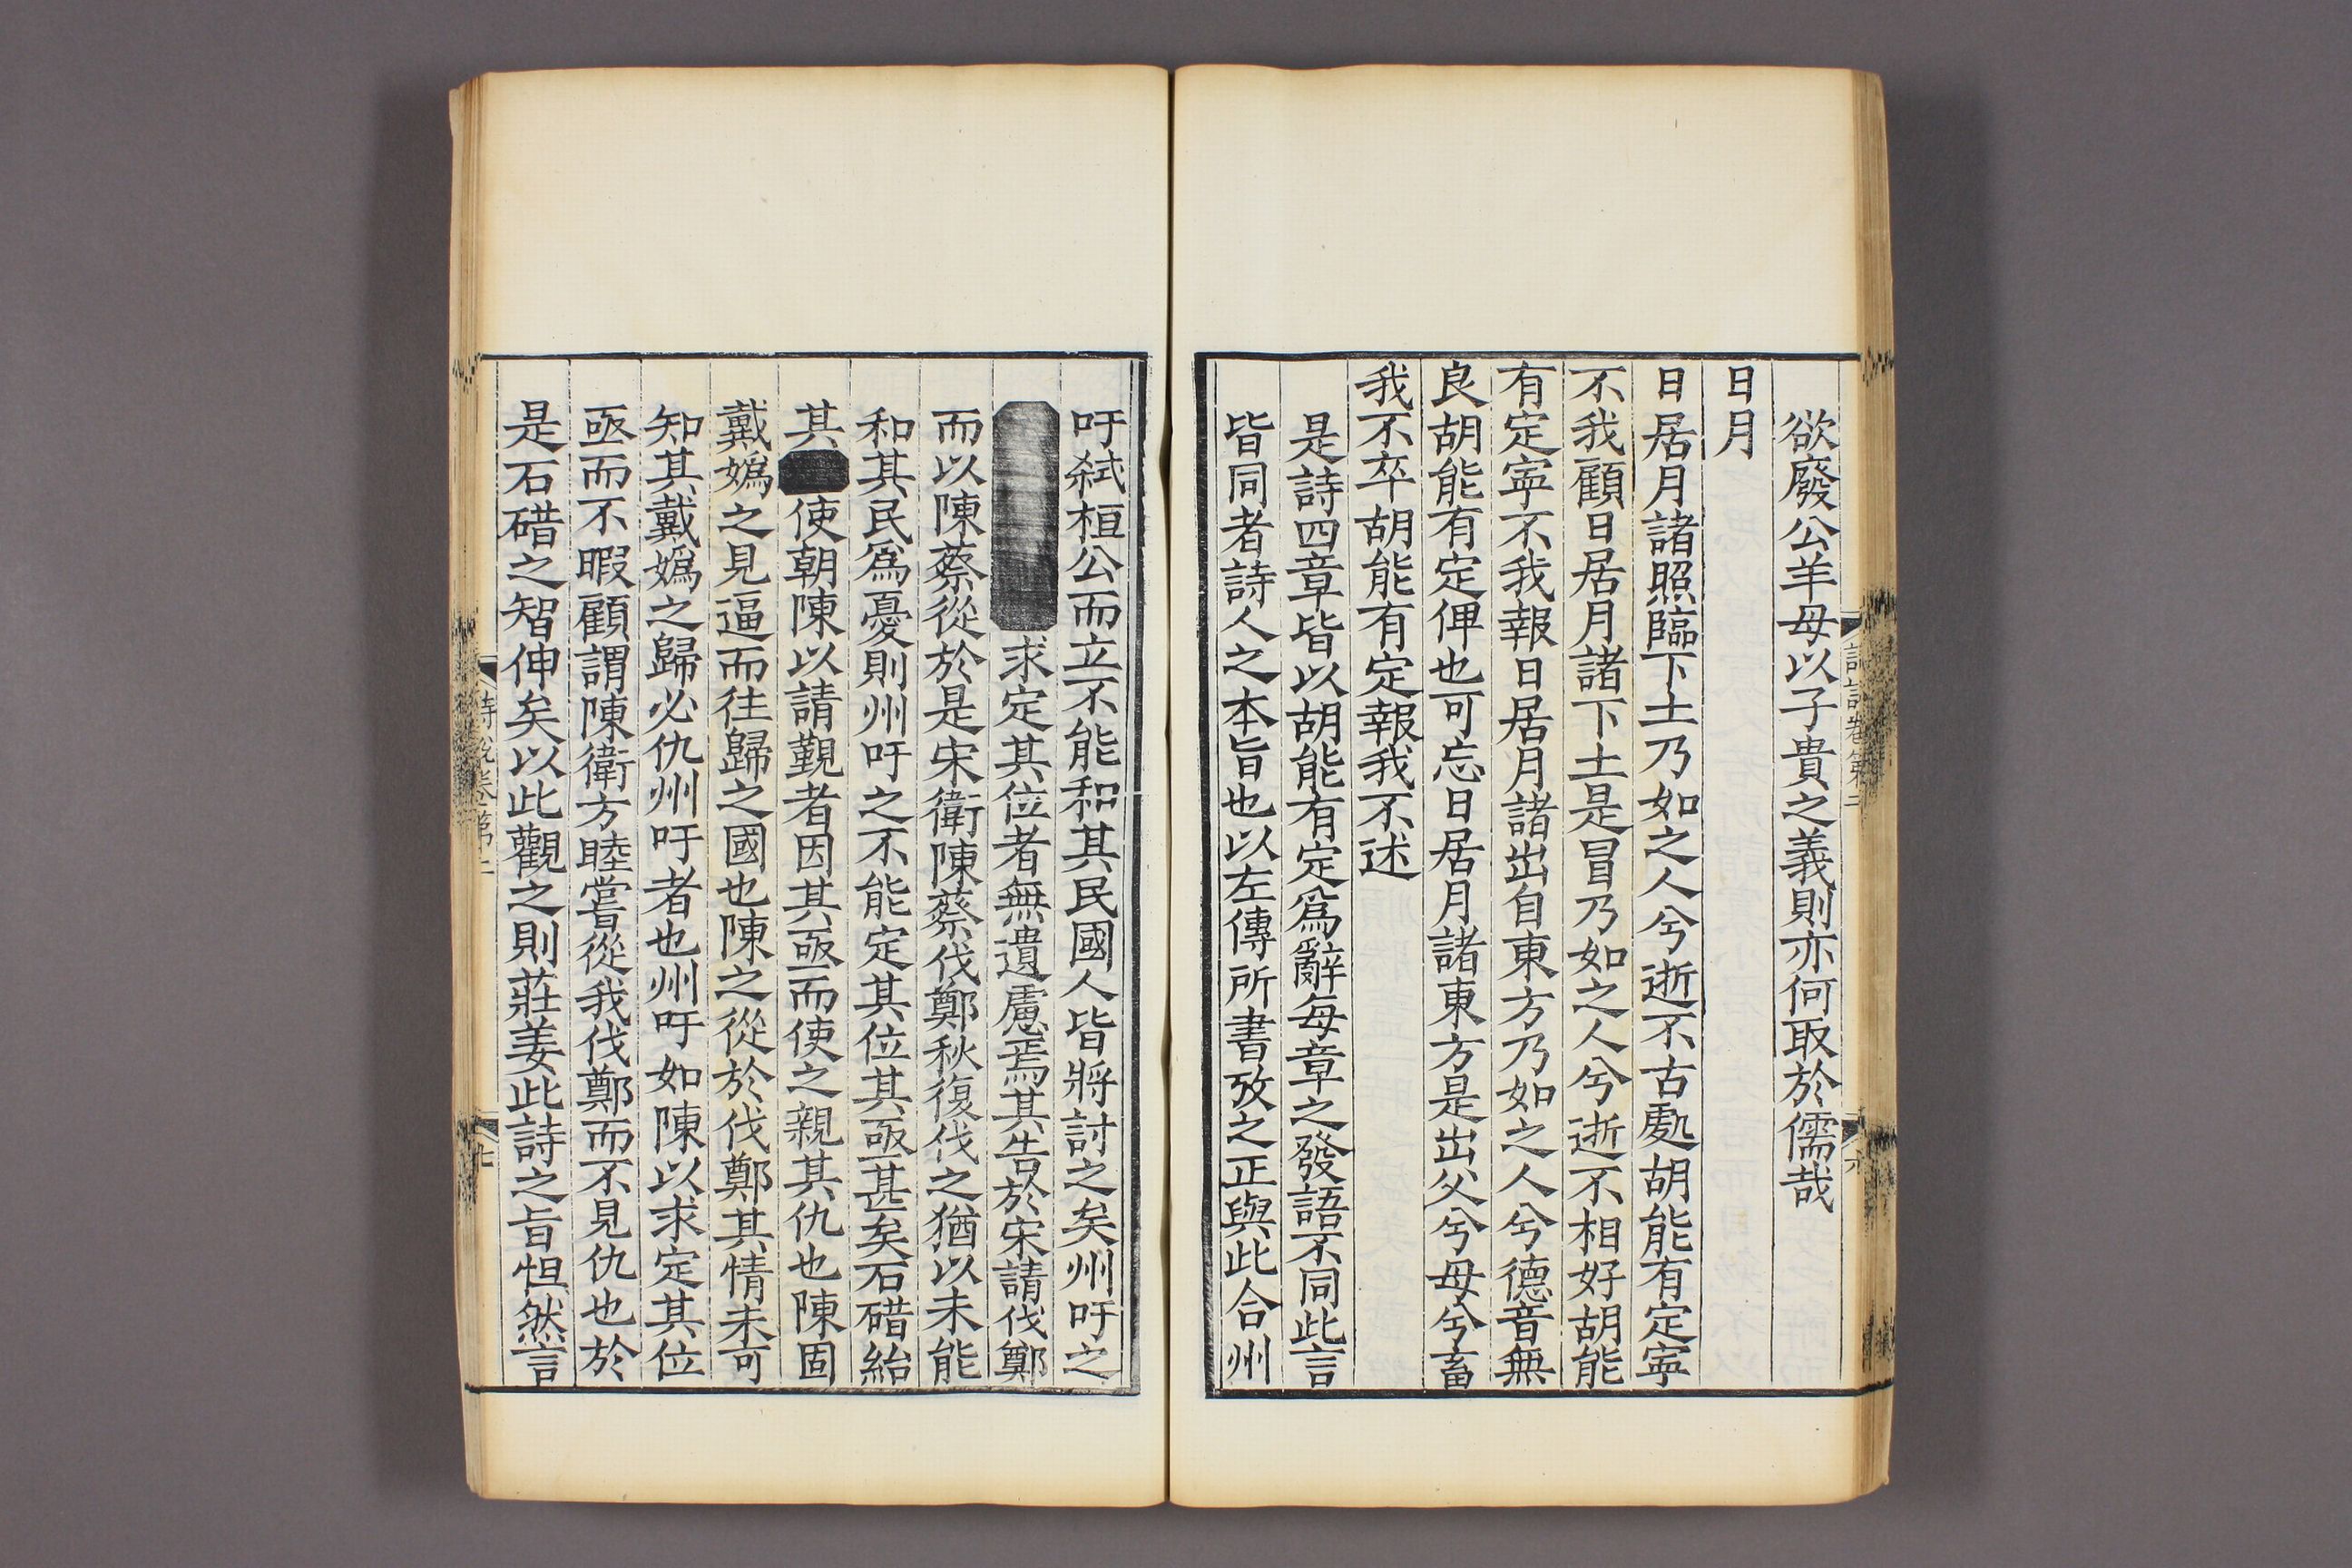 欲廢公羊母以子貴之義則亦何取於儒哉
日月
日居月諸照臨下土乃如之人兮逝不古處胡能有定寧
不我顧日居月諸下土是冒乃如之人兮逝不相好胡能
有定寧不我報日居月諸出自東方乃如之人兮德音無
良胡能有定俾也可忘日居月諸東方是出父兮母兮畜
我不卒胡能有定報我不述
是詩四章皆以胡能有定爲辭每章之發語不同此言
皆同者詩人之本旨也以左傳所書攷之正與此合州
吁弑桓公而立不能和其民國人皆將討之矣州吁之
求定其位者無遺慮焉其告於宋請伐鄭
而以陳蔡從於是宋衛陳蔡伐鄭秋復伐之猶以未能
和其民爲憂則州吁之不能定其位其亟甚矣石碏紿
其使朝陳以請覲者因其亟而使之親其仇也陳固
戴嬀之見逼而往歸之國也陳之從於伐鄭其情未可
知其戴嬀之歸必仇州吁者也州吁如陳以求定其位
亟而不暇顧謂陳衛方睦嘗從我伐鄭而不見仇也於
是石碏之智伸矣以此觀之則莊姜此詩之旨怛然言
詩說卷第二
六
詩說卷第二
七